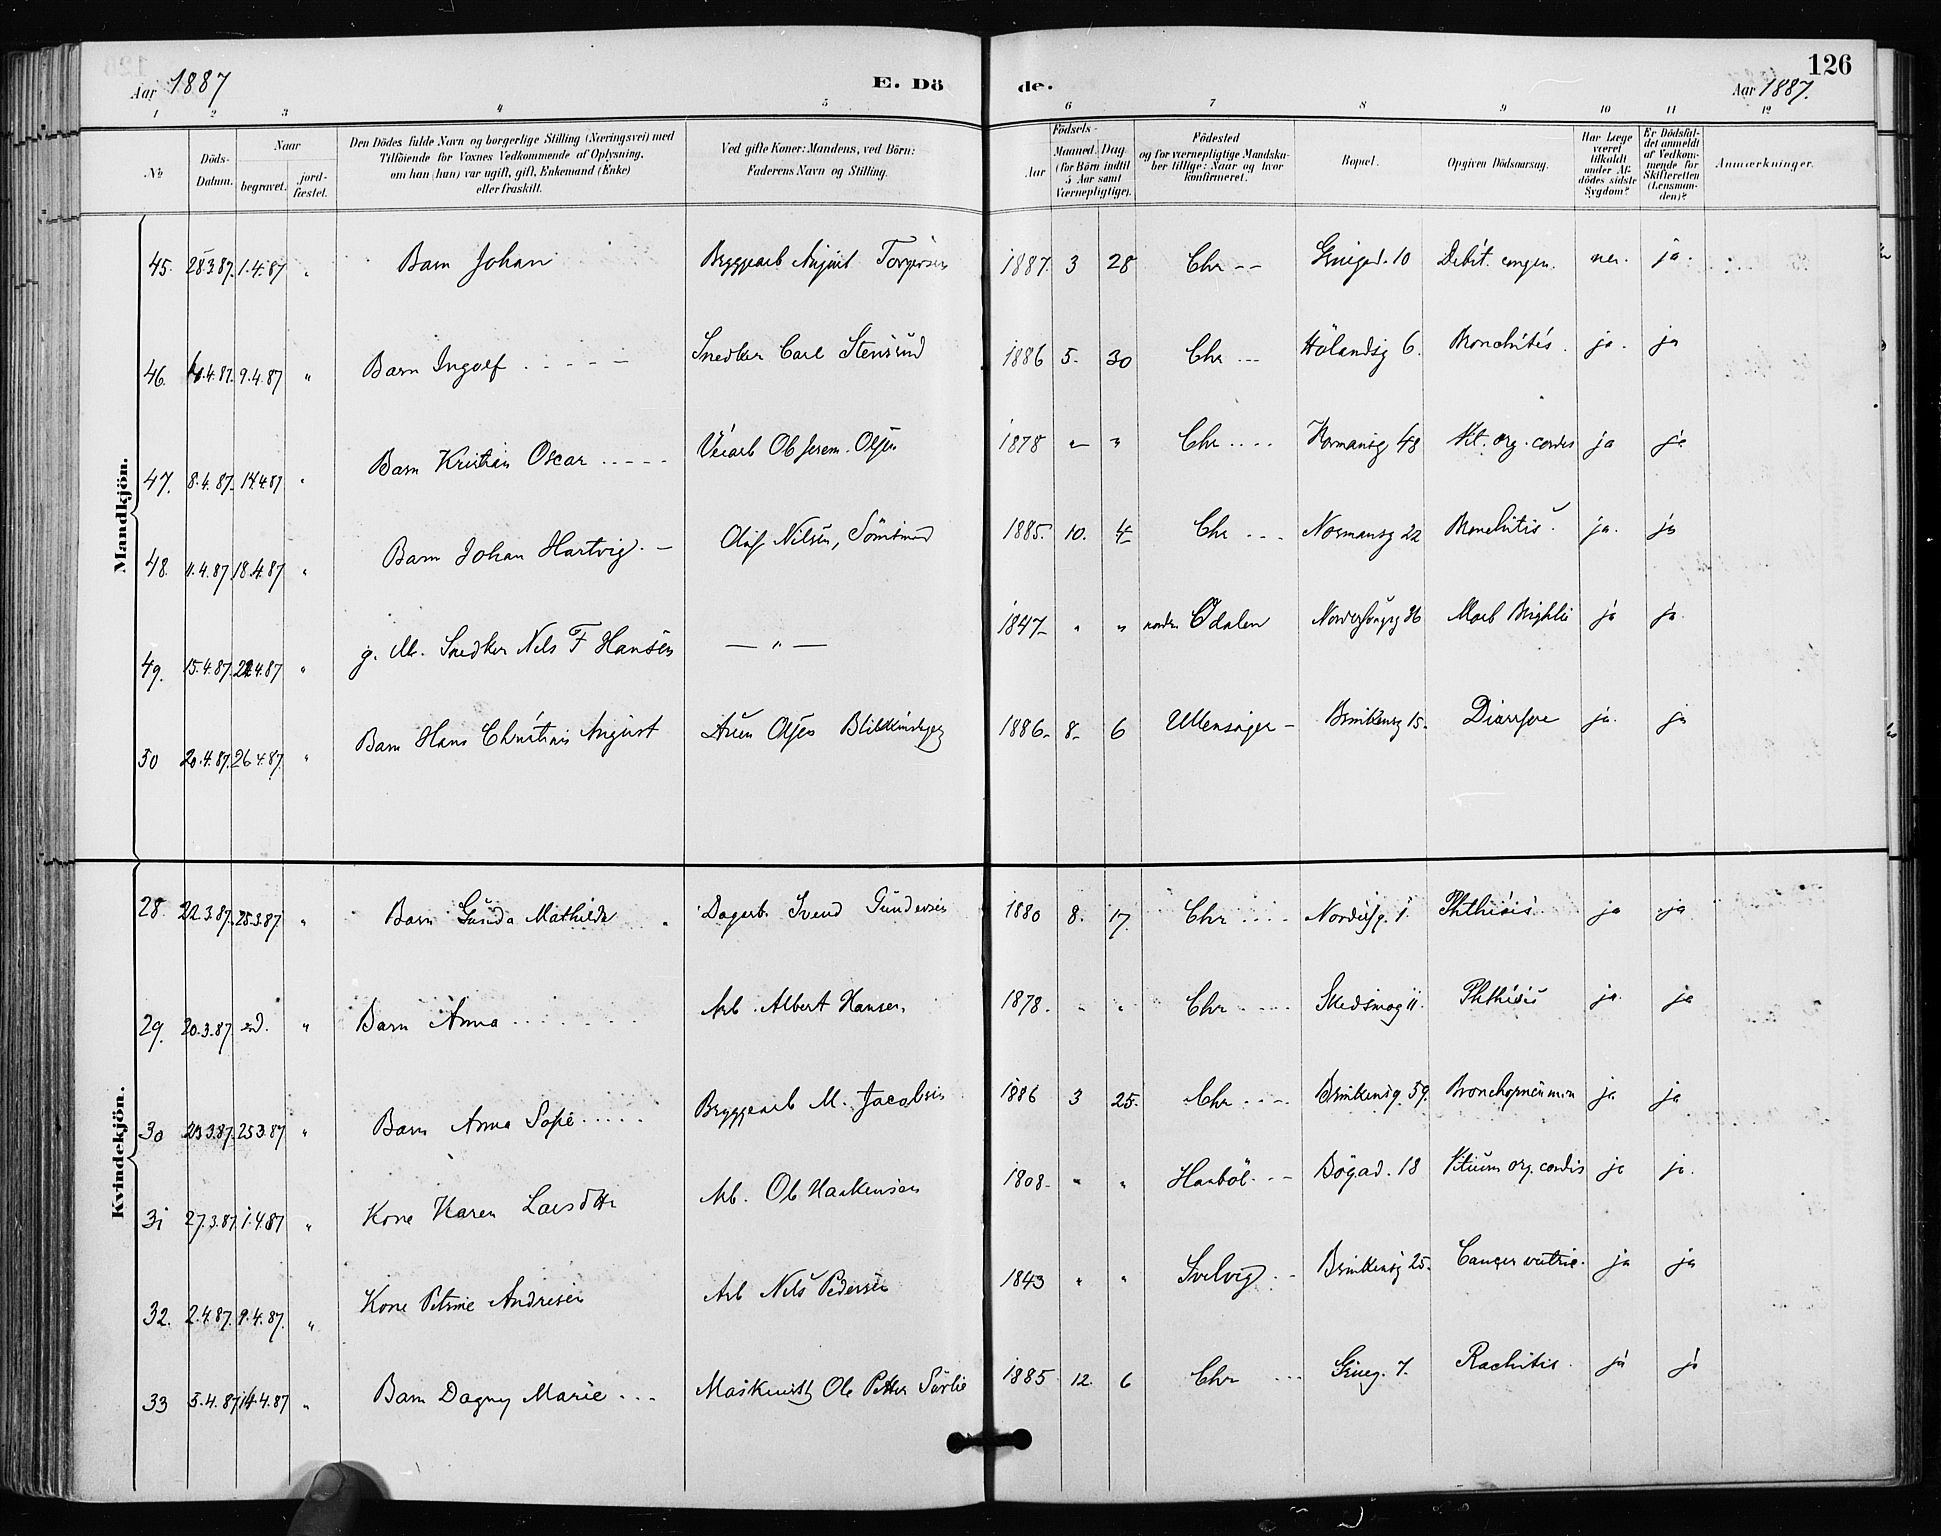 126
Aar 1887
E. Dö
de.
Aar 1887.
1 2 3 4 5 6 7 8 9 10 11 12
No
Döds-Datum.
Naar
begravet.
jord-fæstet.
Den Dödes fulde Navn og borgerlige Stilling (Næringsvei) med
Tilföiende for Voxnes Vedkommende af Oplysning,
om han (hun) var ugift, gift, Enkemand (Enke)
eller fraskilt.
Ved gifte Koner: Mandens, ved Börn:
Faderens Navn og Stilling.
Födsels-
Aar
Maaned. Dag
(for Börn indtil
5 Aar samt
Værnepligtige).
Födested
og for værnepligtige Mandska-
ber tillige: Naar og hvor
konfirmeret.
Bopæl.
Opgiven Dödsaarsag.
Har Læge
været
tilkaldt
under Af-
dödes sidste
Sygdom?
Er Dödsfal-
det anmeldt
af Vedkom-
mende for
Skifteretten
(Lensman-
den)?
Anmærkninger.
Mandkjön.
45. 28.3.87. 1.4.87 " Barn Johan Bryggearb August Torgersen 1887. 3 28 Chr -- Gruegad. 10 Debit. congen. nei. ja.
46. 4.4.87. 9.4.87 " Barn Ingolf Snedker Carl Stensrud 1886 5. 30 Chr Hölandsg 6. Bronchitis. ja. ja
47. 8.4.87. 14.4.87 " Barn Kristian Oscar Olsen 1878 " " Chr Normansg 48 Vit. org. cordis ja ja
48. 11.4.87. 18.4.87 " Barn Johan Hartvig. Olaf Nilsen, 1885. 10. 4 Chr Normansg 22 Bronchitis ja. ja
49. 15.4.87. 22.4.87 " g. M. Snedker Nels F Hansen — " — 1847 " " nordre Odalen 36 Morb Brightii ja ja.
50 20.4.87. 26.4.87. " Barn Hans Christian August Olsen 1886 8 6 Ullensager Brinkensg 15. Diarrhoe ja. ja
Kvindekjön.
28. 22.3.87. 25.3.87. " Barn Gunda Mathilde Dagarb. Svend Gundersen 1880 8. 17. Chr 1. Phthisis ja ja
29. 20.3.87 " Barn Anna Arb. Albert Hansen 1878. " " Chr Skedsmog 11. Phthisis ja. ja
30 23.3.87. 25.3.87 " Barn Anna Sofie Bryggearb M. Jacobsen 1886 3 25. Chr Brinkensg. 59. Bronchopneumon ja ja
31 27.3.87. 1.4.87 " Kone Karen Larsdttr Arb. Ole Haakensen 1808. " " Haaböl Bögad. 18 Vitium org. cordis ja ja.
32. 2.4.87. 9.4.87. " Kone Petrine Andresen Arb Nels Pedersen 1843 " " Svelvig Brinkensg 25. Cancer uteri. ja ja
33 5.4.87. 14.4.87 " Barn Dagny Marie Ole Petter Sörlie 1885 12. 6 Chr Grueg. 7. Rachitis. ja ja